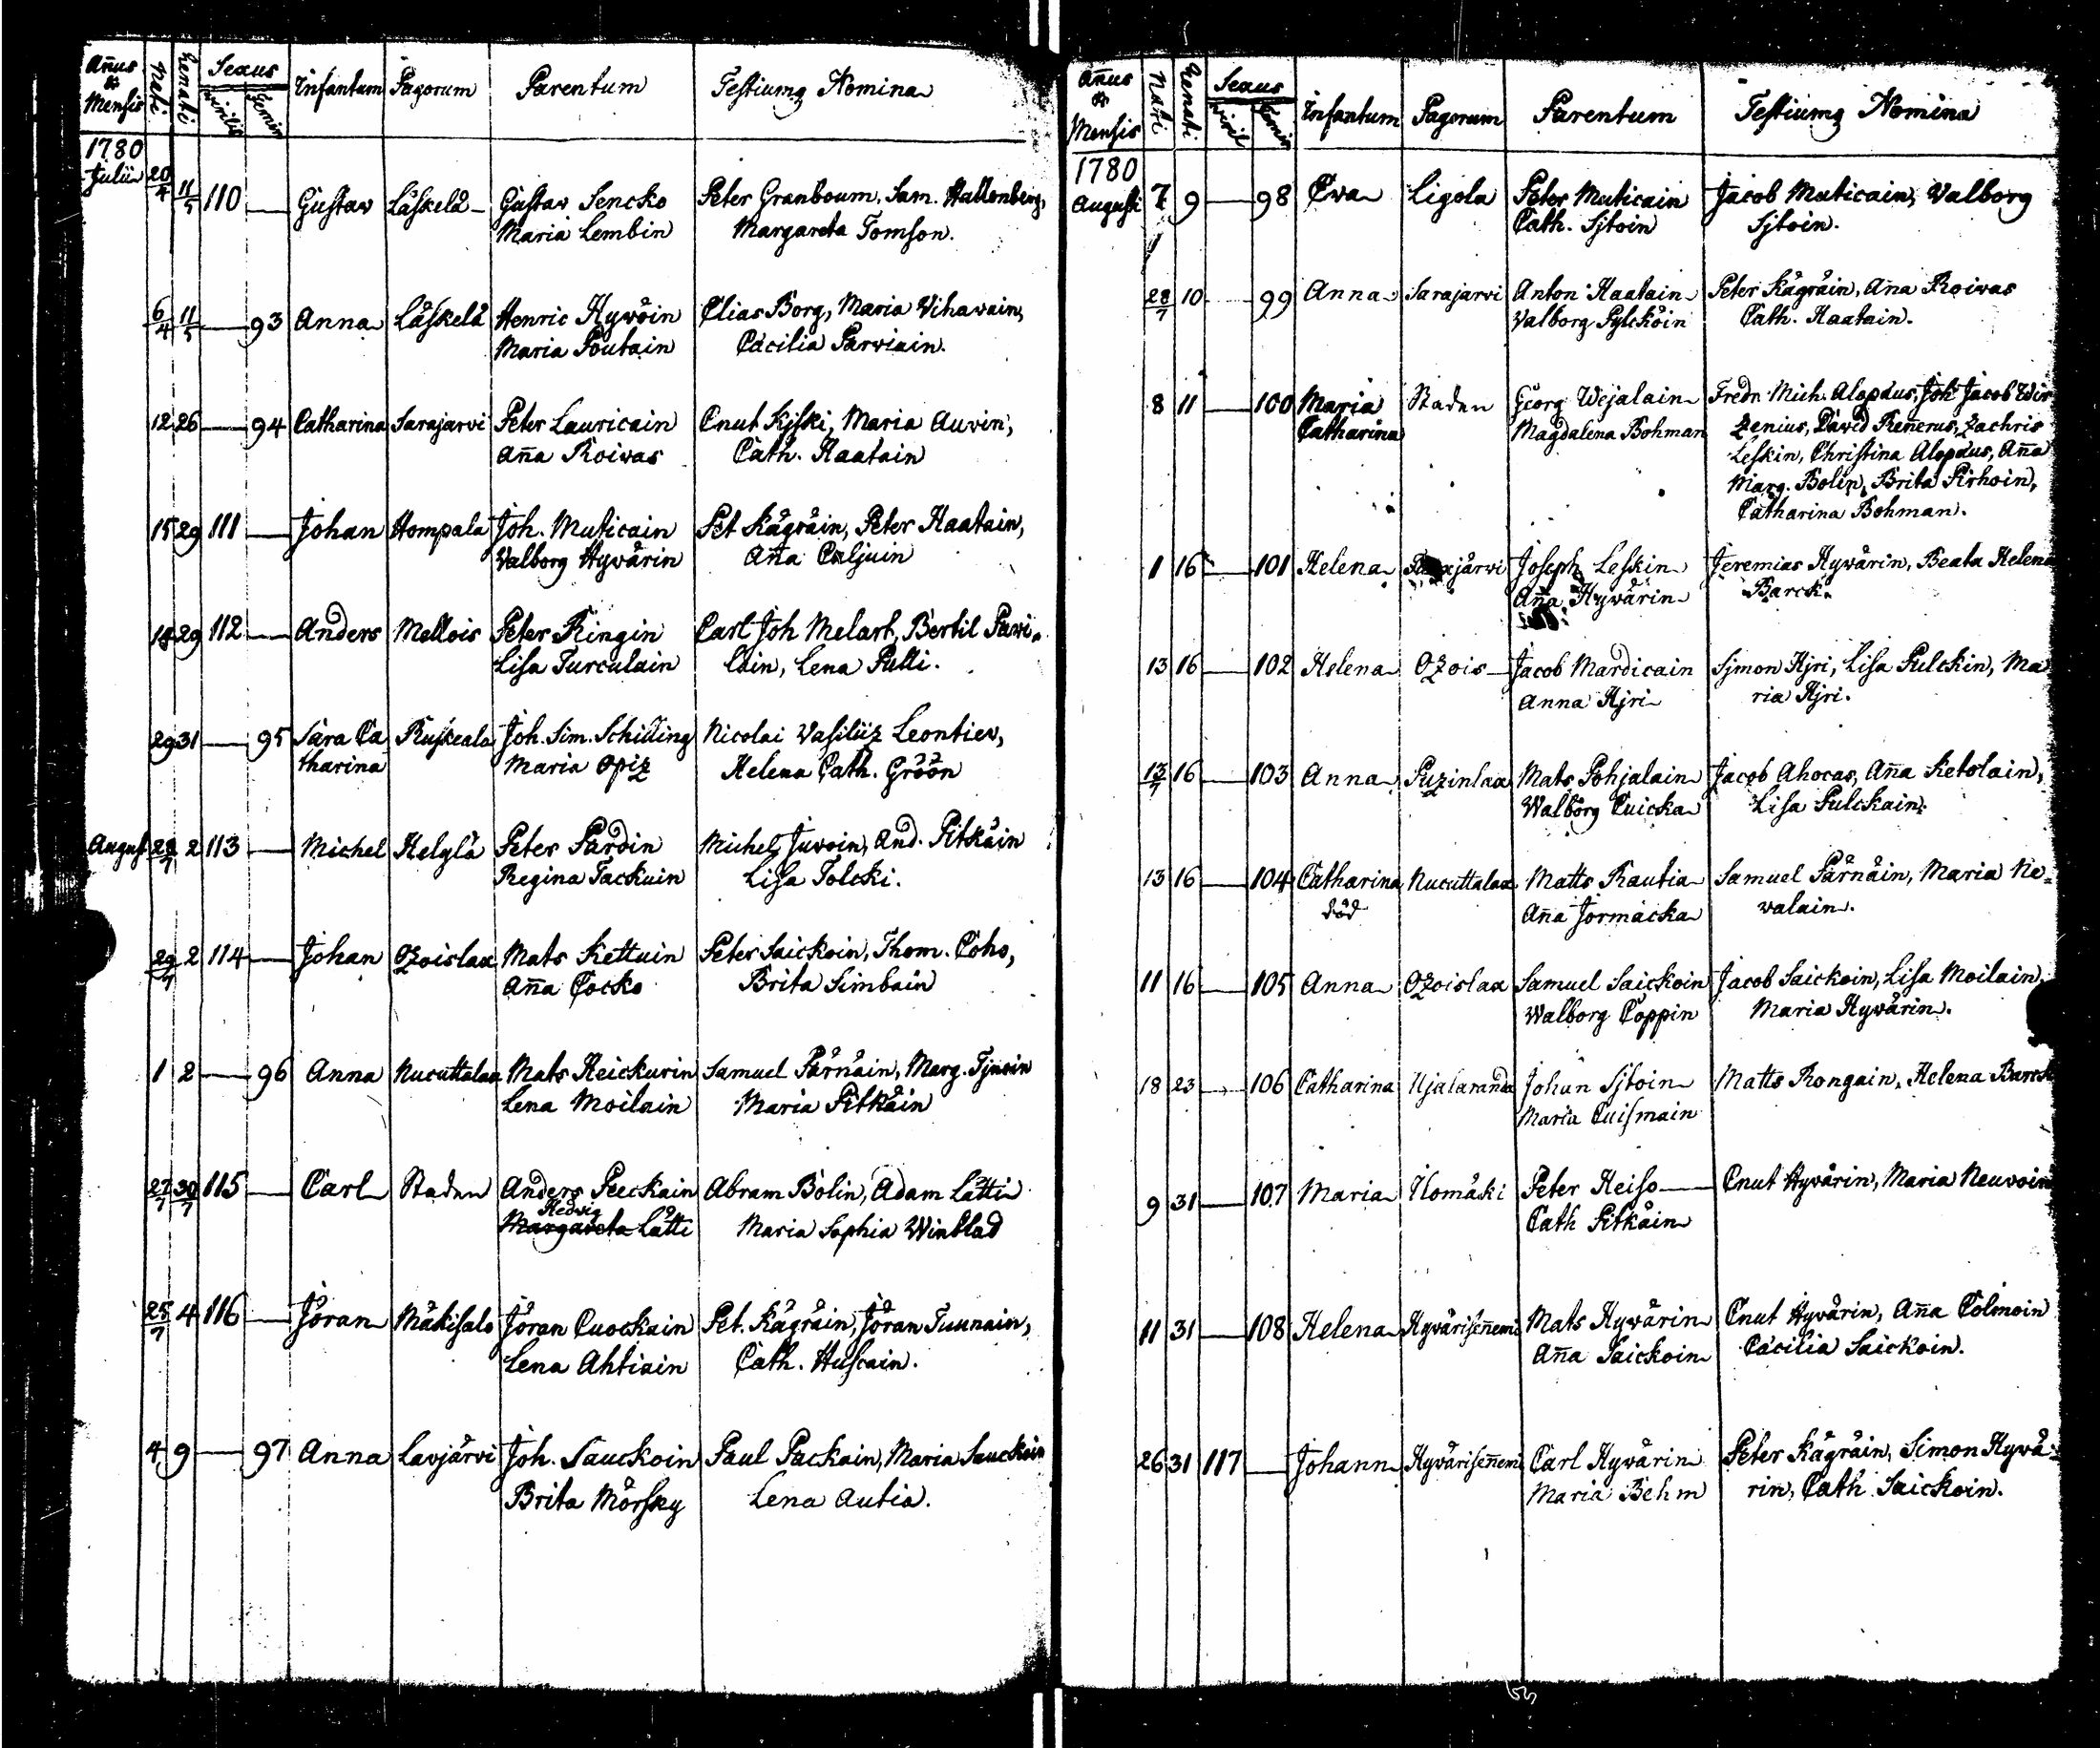 Añus & Mensis Nati Renati Sexus Virilis Femin Infantum Pagorum Parentum Testiumq Nomina
1780
Julii 20/4 11/5 110 — Gustav Läskelä Gustav Sencko Peter Granboum, Sam. Hallonberg,
Maria Lembin Margareta Tomson.
6/4 11/5 — 93 Anna Läskelä Henric Hywöin Elias Borg, Maria Vihavain,
Maria Poutain Cäcilia Parviain.
12 26 — 94 Catharina Sarajarvi Peter Lauricain Cnut Kjski, Maria Auvin,
Aña Roivas Cath. Haatain
15 29 111 — Johan Hompala Joh. Muticain Pet Kägräin, Peter Haatain,
Valborg Hywärin Aña Culjuin
18 29 112 — Anders Mellois Peter Ringin Carl Joh Melart, Bertil Pavi-
Lisa Turculain lain, Lena Pulli.
29 31 — 95 Sara Ca Ruskeala Joh. Sim. Schilling Nicolai Vasiliiz Leontiev,
tharina Maria Opiz Helena Cath. Gröön
August 28/7 2 113 — Michel Helylä Peter Pardin Michel Juvoin, And. Pitkäin
Regina Tackuin Lisa Tolcki.
29/7 2 114 — Johan Ozoislax Mats Kettuin Peter Saickoin, Thom. Coho,
Aña Cocko Brita Simbain
1 2 — 96 Anna Nucuttalax Mats Heickurin Samuel Pärnäin, Marg. Tjnoin
Lena Moilain Maria Pitkäin
27/7 30/7 115 — Carl Staden Anders Peeckain Abram Bolin, Adam Lätti
Hedvig
Margareta Lätti Maria Sophia Winblad
25/7 4 116 — Jöran Mäkisalo Jöran Cuockain Pet. Kägräin, Jöran Tuunain,
Lena Ahtiain Cath. Huscain.
4 9 — 97 Anna Lavjärvi Joh. Sauckoin Paul Packain, Maria Sauckoin
Brita Mörsky Lena Autia.
Añus & Mensis Nati Renati Sexus Viril Femin Infantum Pagorum Parentum Testiumq Nomina
1780
Augusti 7 9 — 98 Eva Ligola Peter Muticain Jacob Muticain, Valborg
Cath. Sjtoin Sjtoin.
28/7 10 — 99 Anna Sarajarvi Anton Haatain Peter Kägräin, Aña Roivas
Valborg Pylcköin Cath. Haatain.
8 11 — 100 Maria Staden Georg Wejalain Fredr. Mich. Alopæus, Joh Jacob Wir
Catharina Magdalena Bohman zenius, David Renerus, Zachris
Leskin, Christina Alopæus, Aña
Marg. Bolin, Brita Pirhoin,
Catharina Bohman.
1 16 — 101 Helena Joseph Leskin Jeremias Hywärin, Beata Helena
Aña Hywärin Barck.
13 16 — 102 Helena Ozois Jacob Mardicain Sjmon Hjri, Lisa Pulckin, Ma
Anna Hjri ria Hjri.
13/7 16 — 103 Anna Puzinlax Mats Pohjalain Jacob Ahocas, Aña Ketolain,
Walborg Cuicka Lisa Pulckain.
13 16 — 104 Catharina Nucuttalax Matts Rautia Samuel Pärnäin, Maria Ne-
död Aña Jormacka valain.
11 16 — 105 Anna Ozoislax Samuel Saickoin Jacob Saickoin, Lisa Moilain,
Walborg Coppin Maria Hywärin.
18 23 — 106 Catharina Hjalaranda Johan Sjtoin Matts Rongain, Helena Barck
Maria Cuismain
9 31 — 107 Maria Ilomäki Peter Heiso — Cnut Hywärin, Maria Neuvoin
Cath Pitkäin
11 31 — 108 Helena Hywäriseñemi Mats Hywärin Cnut Hywärin, Aña Colmoin
Aña Saickoin Cäcilia Saickoin.
26 31 117 — Johann Hywäriseñemi Carl Hywärin Peter Kägräin, Simon Hywä-
Maria Behm rin, Cath Saickoin.